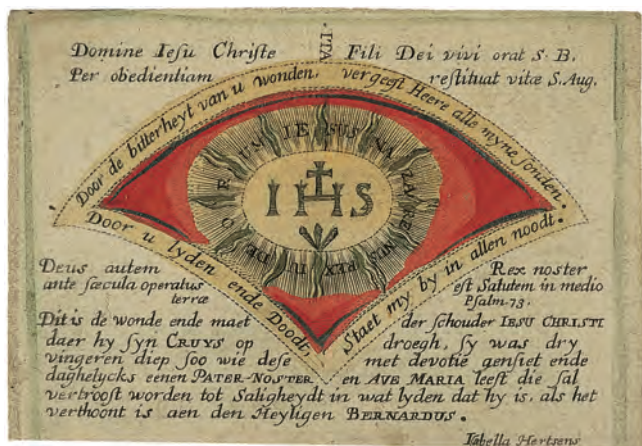 ITA
Domine Iesu Christe Fili Dei vivi orat S. B.
Per obedientiam restituat vitæ S. Aug.
Door de bitterheyt van u wonden, vergeeft Heere alle myne sonden.
IESUS NAZARENUS REX IUDEORUM
IHS
Door u lyden ende Doodt, Staet my by in allen noodt.
Deus autem Rex noster
ante sæcula operatus est Salutem in medio
terræ Psalm-73.
Dit is de wonde ende maet der schouder IESU CHRISTI
daer hy syn CRUYS op droegh, sy was dry
vingeren diep soo wie dese met devotie aensiet ende
daghelycks eenen PATER-NOSTER en AVE MARIA leest die sal
vertroost worden tot Saligheydt in wat lyden dat hy is, als het
verthoont is aen den Heyligen BERNARDUS.
Isabella Hertsens